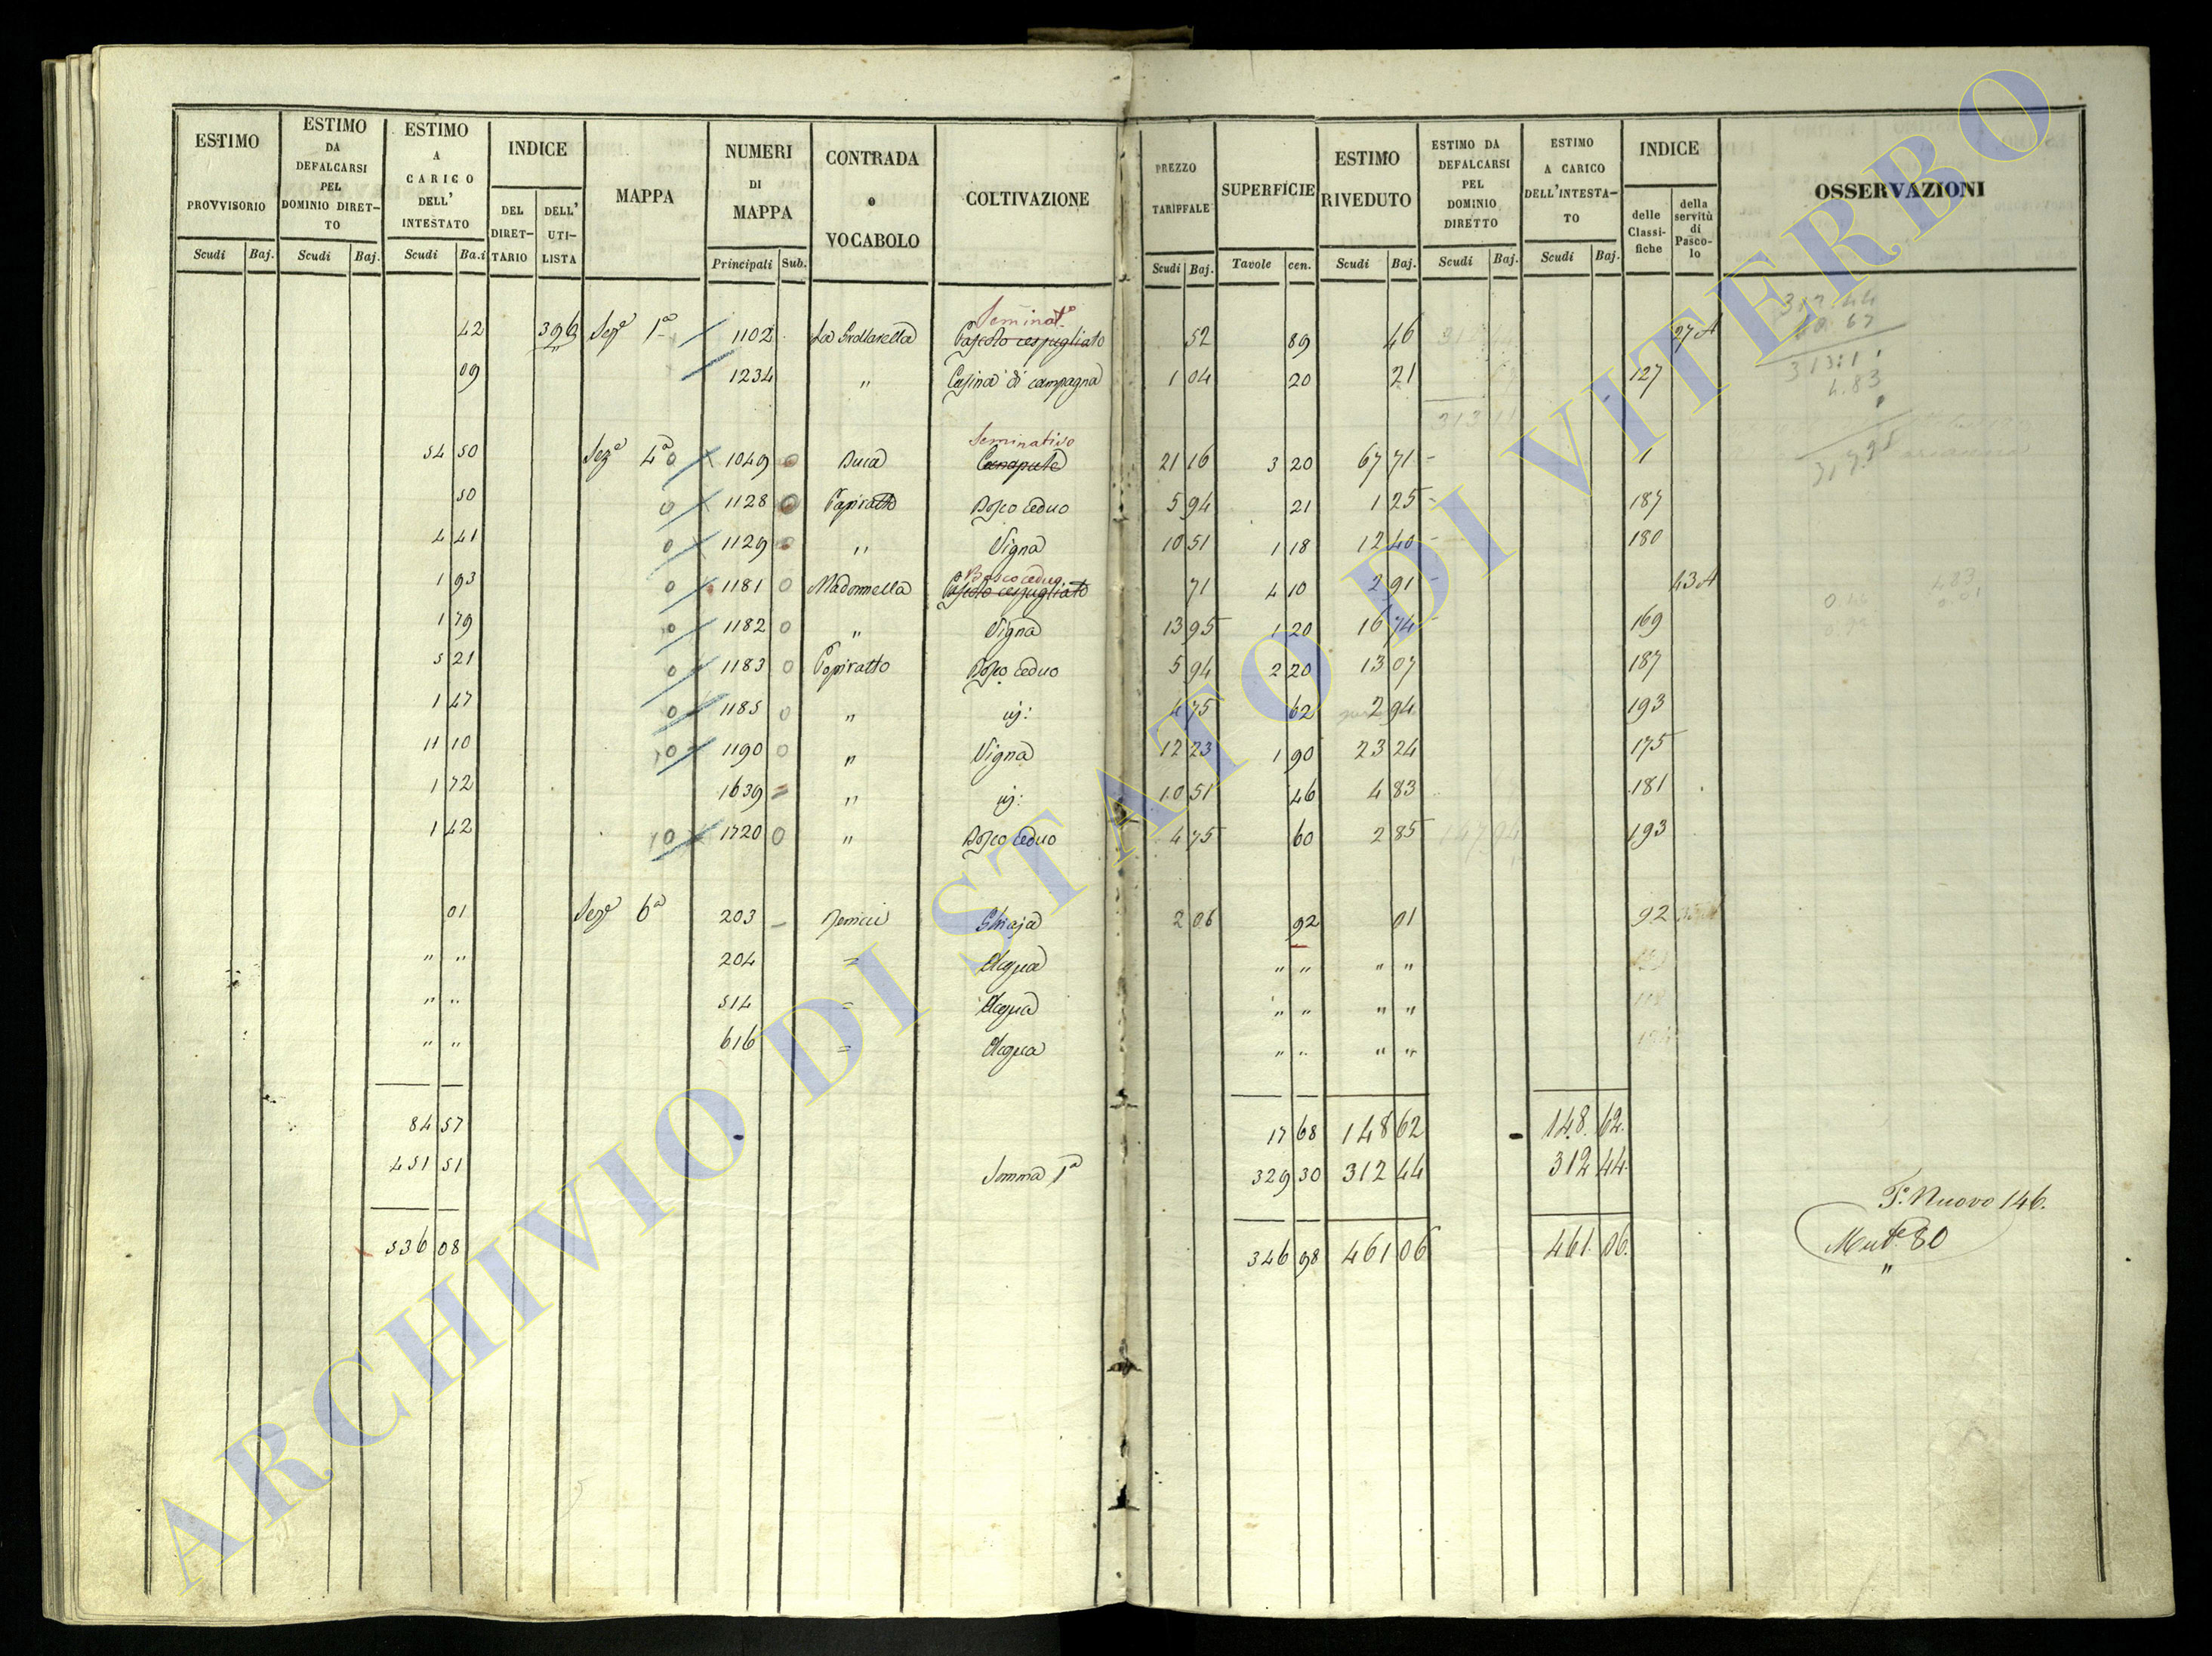 ESTIMO PROVVISORIO Scudi Baj.
ESTIMO DA DEFALCARSI PEL DOMINIO DIRET-TO Scudi Baj.
ESTIMO A CARICO DELL' INTESTATO Scudi Ba.i
INDICE DEL DIRET-TARIO DELL' UTI-LISTA
MAPPA
NUMERI DI MAPPA Principali Sub.
CONTRADA o VOCABOLO
COLTIVAZIONE
PREZZO TARIFFALE Scudi Baj.
SUPERFICIE Tavole cen.
ESTIMO RIVEDUTO Scudi Baj.
ESTIMO DA DEFALCARSI PEL DOMINIO DIRETTO Scudi Baj.
ESTIMO A CARICO DELL'INTESTA-TO Scudi Baj.
INDICE delle Classi-fiche della servitù di Pasco-lo
OSSERVAZIONI
Seminat.º
42 396 Sez.e 1ª 1102 La Grottarella Pascolo cespugliato 52 89 46 27 A
09 1234 " Casina di campagna 1 04 20 21 127
Seminativo
54 50 Sez.e 4ª 0 1049 0 Buca Canapule 21 16 3 20 67 71 1
50 0 1128 0 Papiratto Bosco ceduo 5 94 21 1 25 187
4 41 0 1129 0 " Vigna 10 51 1 18 12 40 180
Bosco ceduo
1 93 0 1181 0 Madonnella Pascolo cespugliato 71 4 10 2 91 43 A
1 79 0 1182 0 " Vigna 13 95 1 20 16 74 169
5 21 0 1183 0 Papiratto Bosco ceduo 5 94 2 20 13 07 187
1 47 0 1185 0 " 4 75 62 2 94 193
11 10 0 1190 0 " Vigna 12 23 1 90 23 24 175
1 72 1639 " 10 51 46 4 83 181
1 42 0 1720 0 " Bosco ceduo 4 75 60 2 85 193
01 Sez.e 6ª 203 Ghiaja 2 06 92 01 92
" " 204 = Acqua " " " "
" " 514 = Acqua " " " "
" " 616 = Acqua " " " "
84 57 17 68 148 62 148. 62.
451 51 Somma 1ª 329 30 312 44 312 44.
536 08 346 98 461 06 461. 06.
312.44
313:1
4.83
T.º Nuovo 146.
Mut.e 80
"
ARCHIVIO DI STATO DI VITERBO